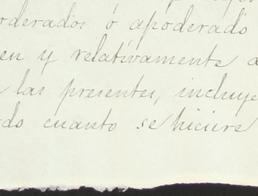 orderados ó apoderado
en y relativamente a
las presentes, incluye
do cuanto se hiciere